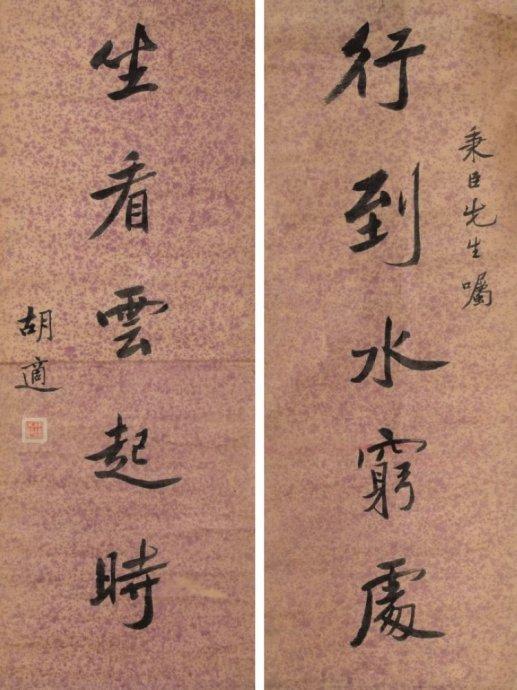 行到水窮處
秉臣先生囑
坐看雲起時
胡適